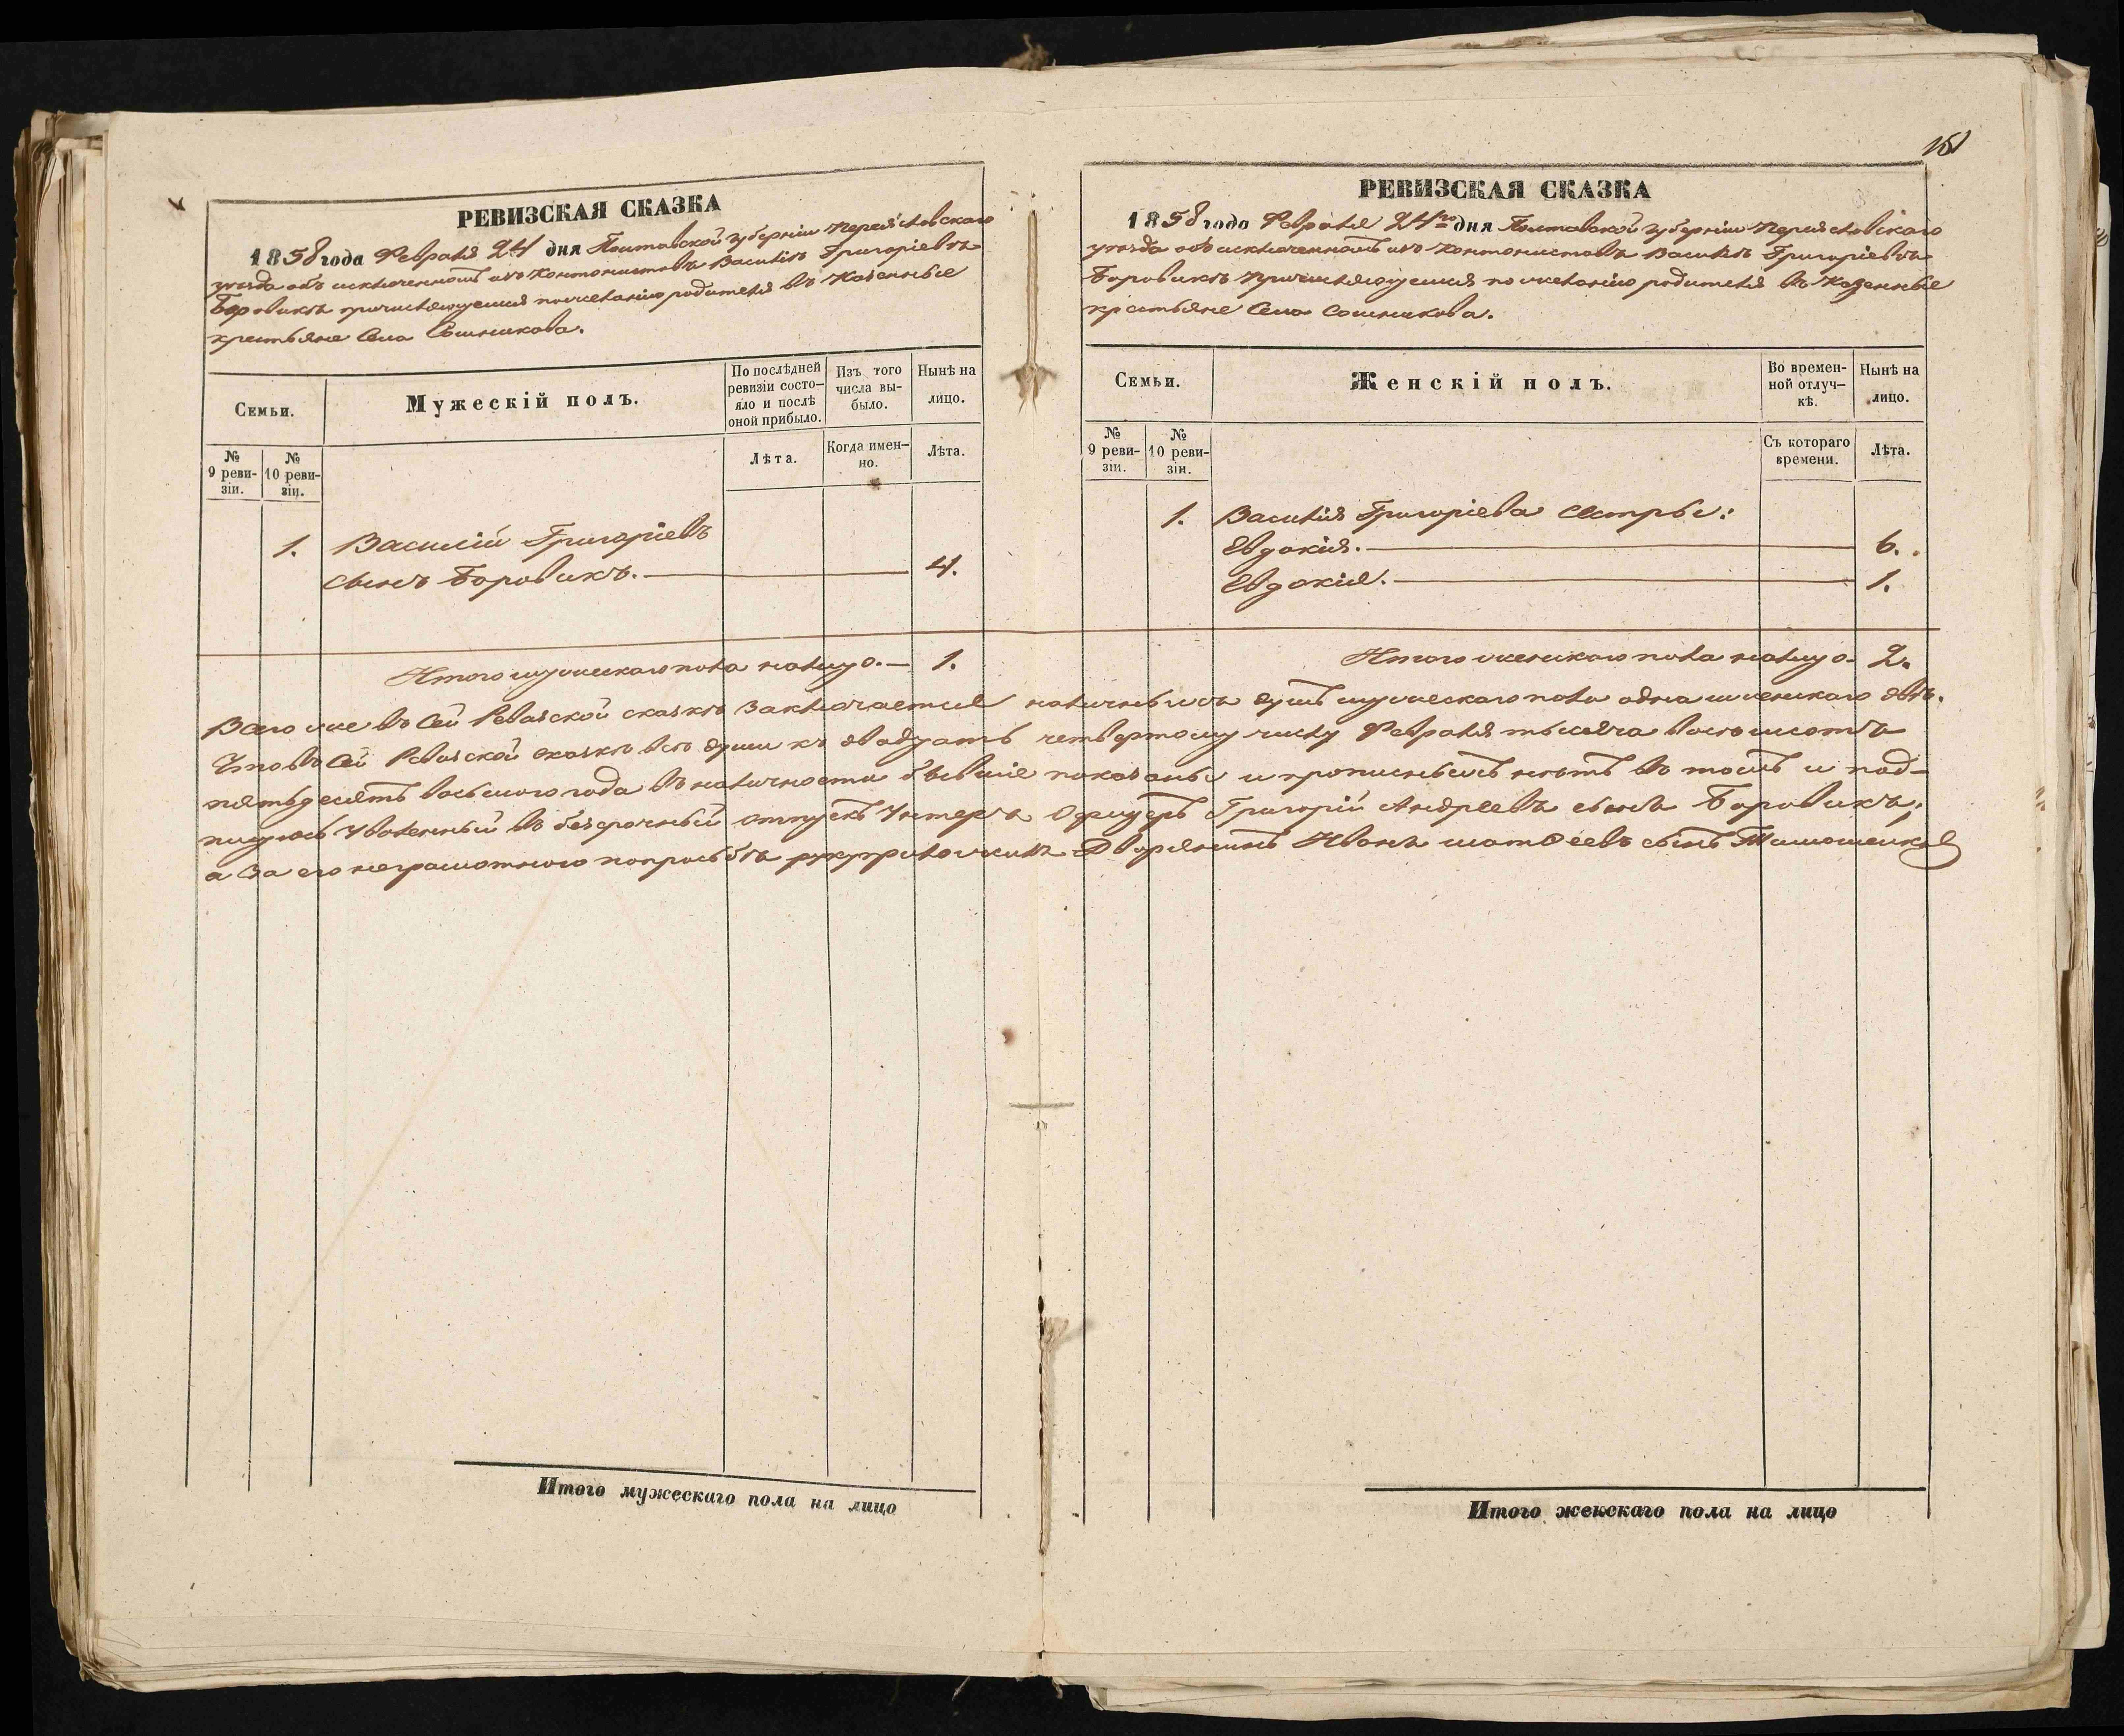 161
РЕВИЗСКАЯ СКАЗКА
1858 года Февраля 24 дня Полтавской губерніи Переяславскаго
уезда объ исключенномъ изъ Кантонистовъ Василіе Григоріевъ
Боровикъ причисляющемся по желанію родителя въ Казенные
крестьяне Села Сошникова.
Семьи.
Мужескій полъ.
По послѣдней ревизіи состо-
яло и послѣ оной прибыло.
Изъ того числа вы-
было.
Нынѣ на лицо.
№ 9 реви-
зіи.
№ 10 реви-
зіи.
Лѣта.
Когда имен-
но.
Лѣта.
1. Василій Григоріевъ
сынъ Боровикъ. 4.
Итого мужескаго пола налицо. 1.
РЕВИЗСКАЯ СКАЗКА
1858 года Февраля 24го дня Полтавской губерніи Переяславскаго
уезда объ исключенномъ изъ Кантонистовъ Василіе Григоріевъ
Боровикъ причисляющемся по желанію родителя въ Казенные
крестьяне Села Сошникова.
Семьи.
Женскій полъ.
Во времен-
ной отлуч-
кѣ.
Нынѣ на лицо.
№ 9 реви-
зіи.
№ 10 реви-
зіи.
Съ котораго времени.
Лѣта.
1. Василія Григоріева Сестры:
Евдокія. 6.
Евдокія. 1.
Итого женскаго пола налицо. 2.
Всего же въ сей Ревизской сказке заключается наличныхъ душъ мужескаго пола одна и женскаго две.
Что въ сей Ревизской сказке все души къ двадцать четвертому числу Февраля тысяча восемьсотъ
пятьдесятъ восьмого года въ наличности бывшіе показаны и прописныхъ нетъ въ томъ и под-
пишусь Уволенный въ безсрочный отпускъ Унтеръ Офицеръ Григорій Андреевъ сынъ Боровикъ,
а за его неграмотного по просьбе руку приложилъ Дворянинъ Иванъ Матвеевъ сынъ Тимошенко
Итого мужескаго пола на лицо
Итого женскаго пола на лицо